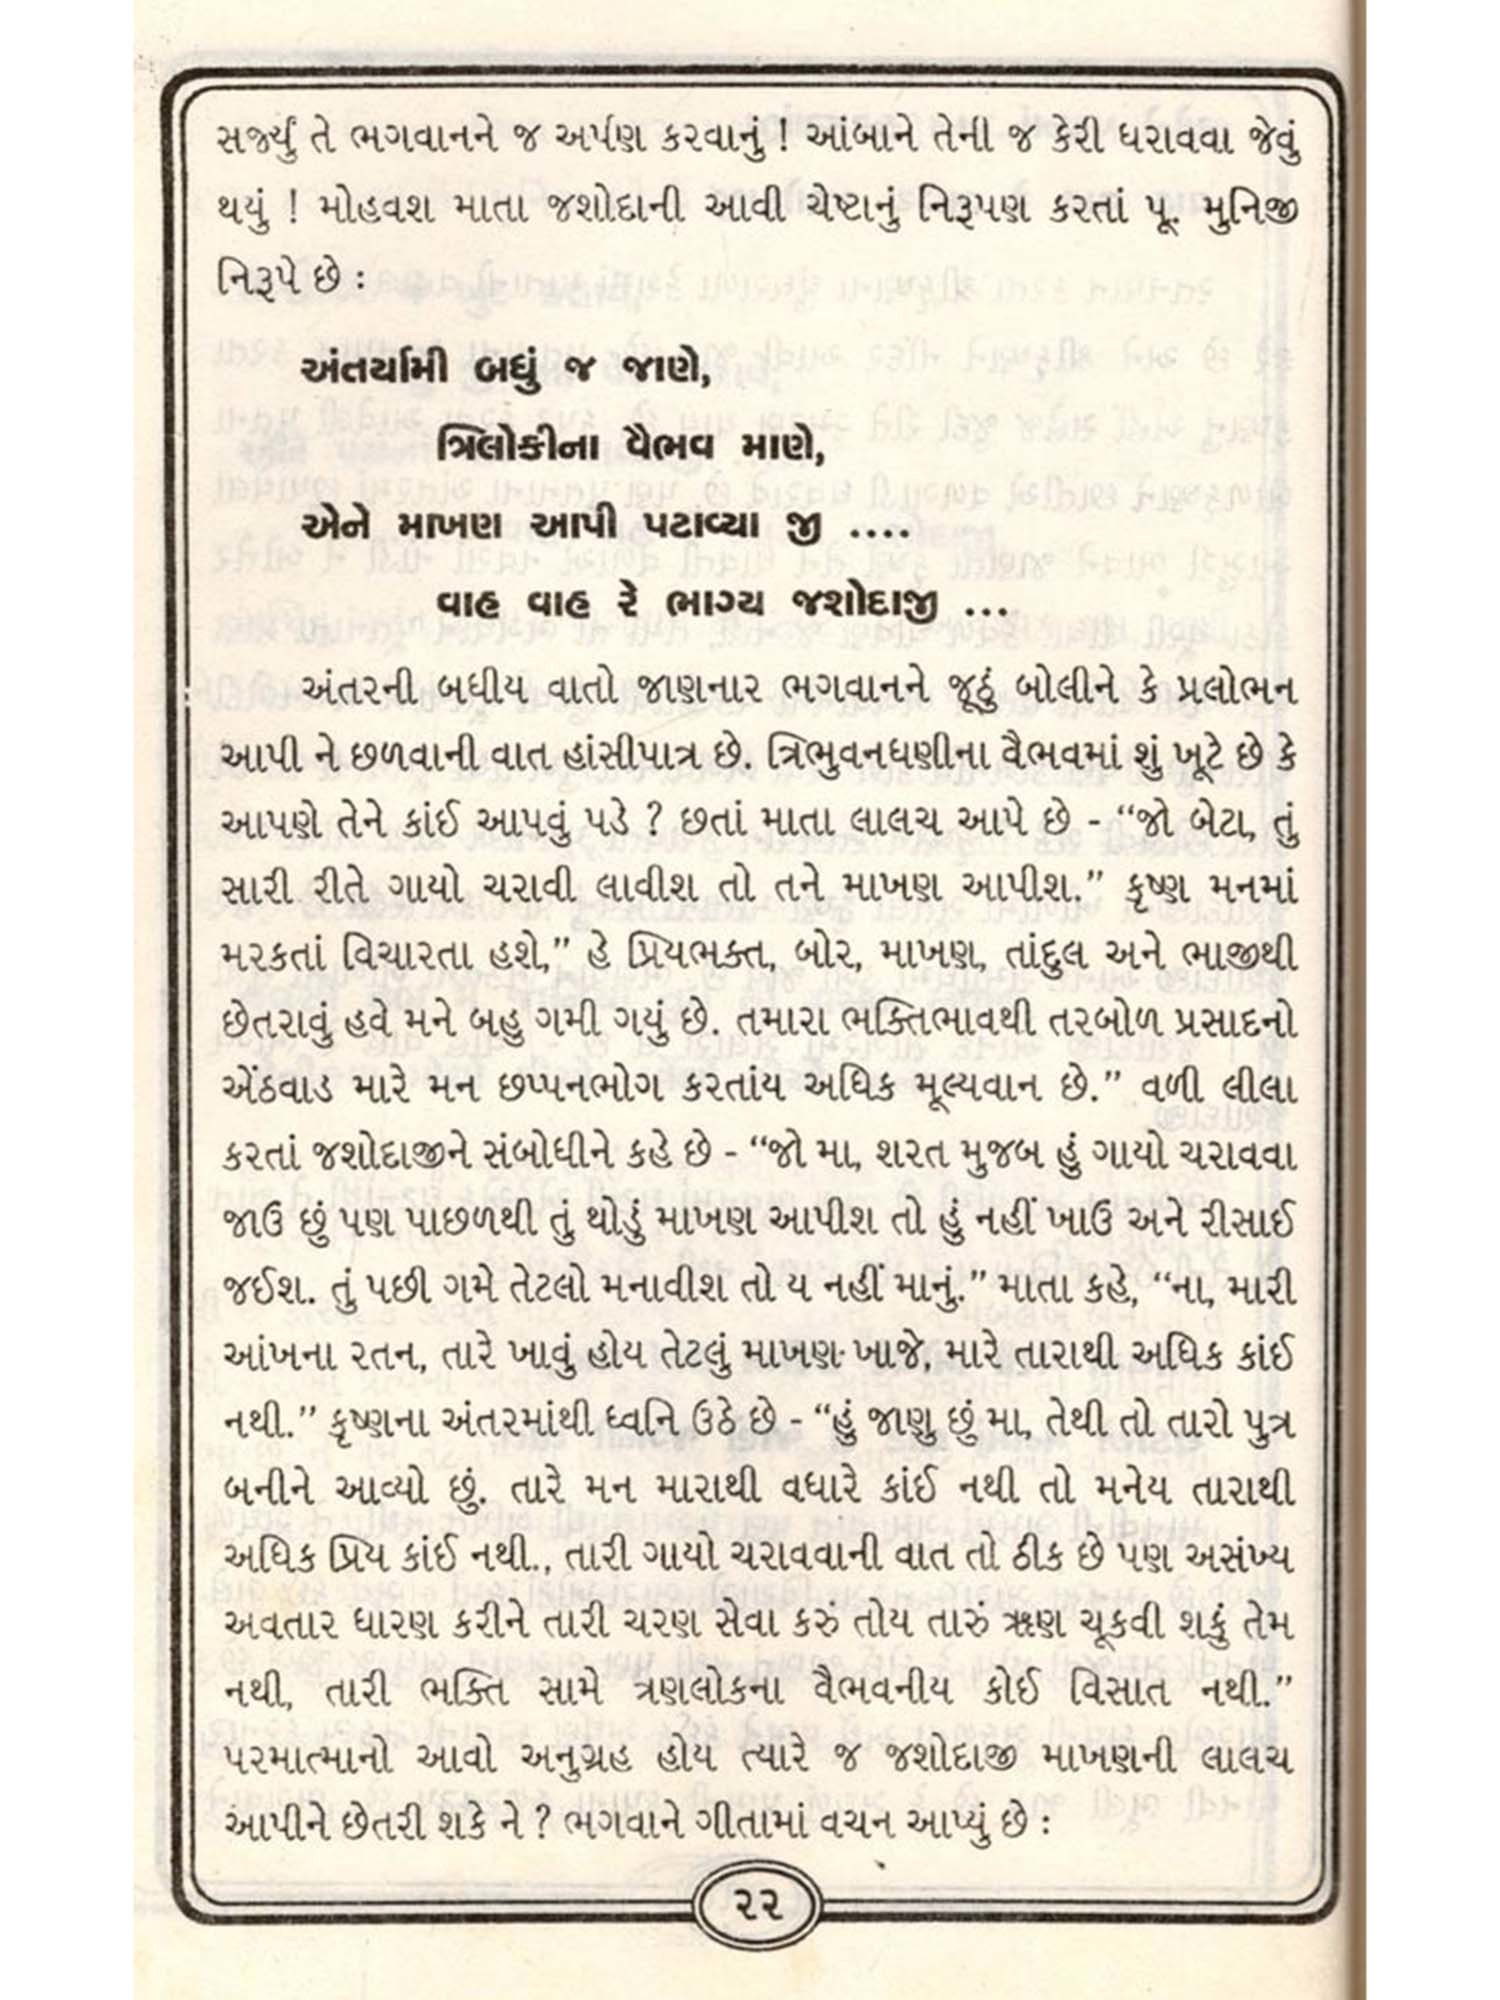 સર્જ્યું તે ભગવાનને જ અર્પણ કરવાનું ! આંબાને તેની જ કેરી ધરાવવા જેવું
થયું ! મોહવશ માતા જશોદાની આવી ચેષ્ટાનું નિરૂપણ કરતાં પૂ. મુનિજી
નિરૂપે છે :
અંતર્યામી બધું જ જાણે,
ત્રિલોકીના વૈભવ માણે,
એને માખણ આપી પટાવ્યા જી ....
વાહ વાહ રે ભાગ્ય જશોદાજી ...
અંતરની બધીય વાતો જાણનાર ભગવાનને જૂઠું બોલીને કે પ્રલોભન
આપી ને છળવાની વાત હાંસીપાત્ર છે. ત્રિભુવનધણીના વૈભવમાં શું ખૂટે છે કે
આપણે તેને કાંઈ આપવું પડે ? છતાં માતા લાલચ આપે છે - “જો બેટા, તું
સારી રીતે ગાયો ચરાવી લાવીશ તો તને માખણ આપીશ.” કૃષ્ણ મનમાં
મરકતાં વિચારતા હશે,” હે પ્રિયભક્ત, બોર, માખણ, તાંદુલ અને ભાજીથી
છેતરાવું હવે મને બહુ ગમી ગયું છે. તમારા ભક્તિભાવથી તરબોળ પ્રસાદનો
એંઠવાડ મારે મન છપ્પનભોગ કરતાંય અધિક મૂલ્યવાન છે.” વળી લીલા
કરતાં જશોદાજીને સંબોધીને કહે છે - “જો મા, શરત મુજબ હું ગાયો ચરાવવા
જાઉં છું પણ પાછળથી તું થોડું માખણ આપીશ તો હું નહીં ખાઉં અને રીસાઈ
જઈશ. તું પછી ગમે તેટલો મનાવીશ તો ય નહીં માનું.” માતા કહે, “ના, મારી
આંખના રતન, તારે ખાવું હોય તેટલું માખણ ખાજે, મારે તારાથી અધિક કાંઈ
નથી.” કૃષ્ણના અંતરમાંથી ધ્વનિ ઉઠે છે - “હું જાણુ છું મા, તેથી તો તારો પુત્ર
બનીને આવ્યો છું. તારે મન મારાથી વધારે કાંઈ નથી તો મનેય તારાથી
અધિક પ્રિય કાંઈ નથી., તારી ગાયો ચરાવવાની વાત તો ઠીક છે પણ અસંખ્ય
અવતાર ધારણ કરીને તારી ચરણ સેવા કરું તોય તારું ઋણ ચૂકવી શકું તેમ
નથી, તારી ભક્તિ સામે ત્રણલોકના વૈભવનીય કોઈ વિસાત નથી.”
પરમાત્માનો આવો અનુગ્રહ હોય ત્યારે જ જશોદાજી માખણની લાલચ
આપીને છેતરી શકે ને ? ભગવાને ગીતામાં વચન આપ્યું છે :
૨૨